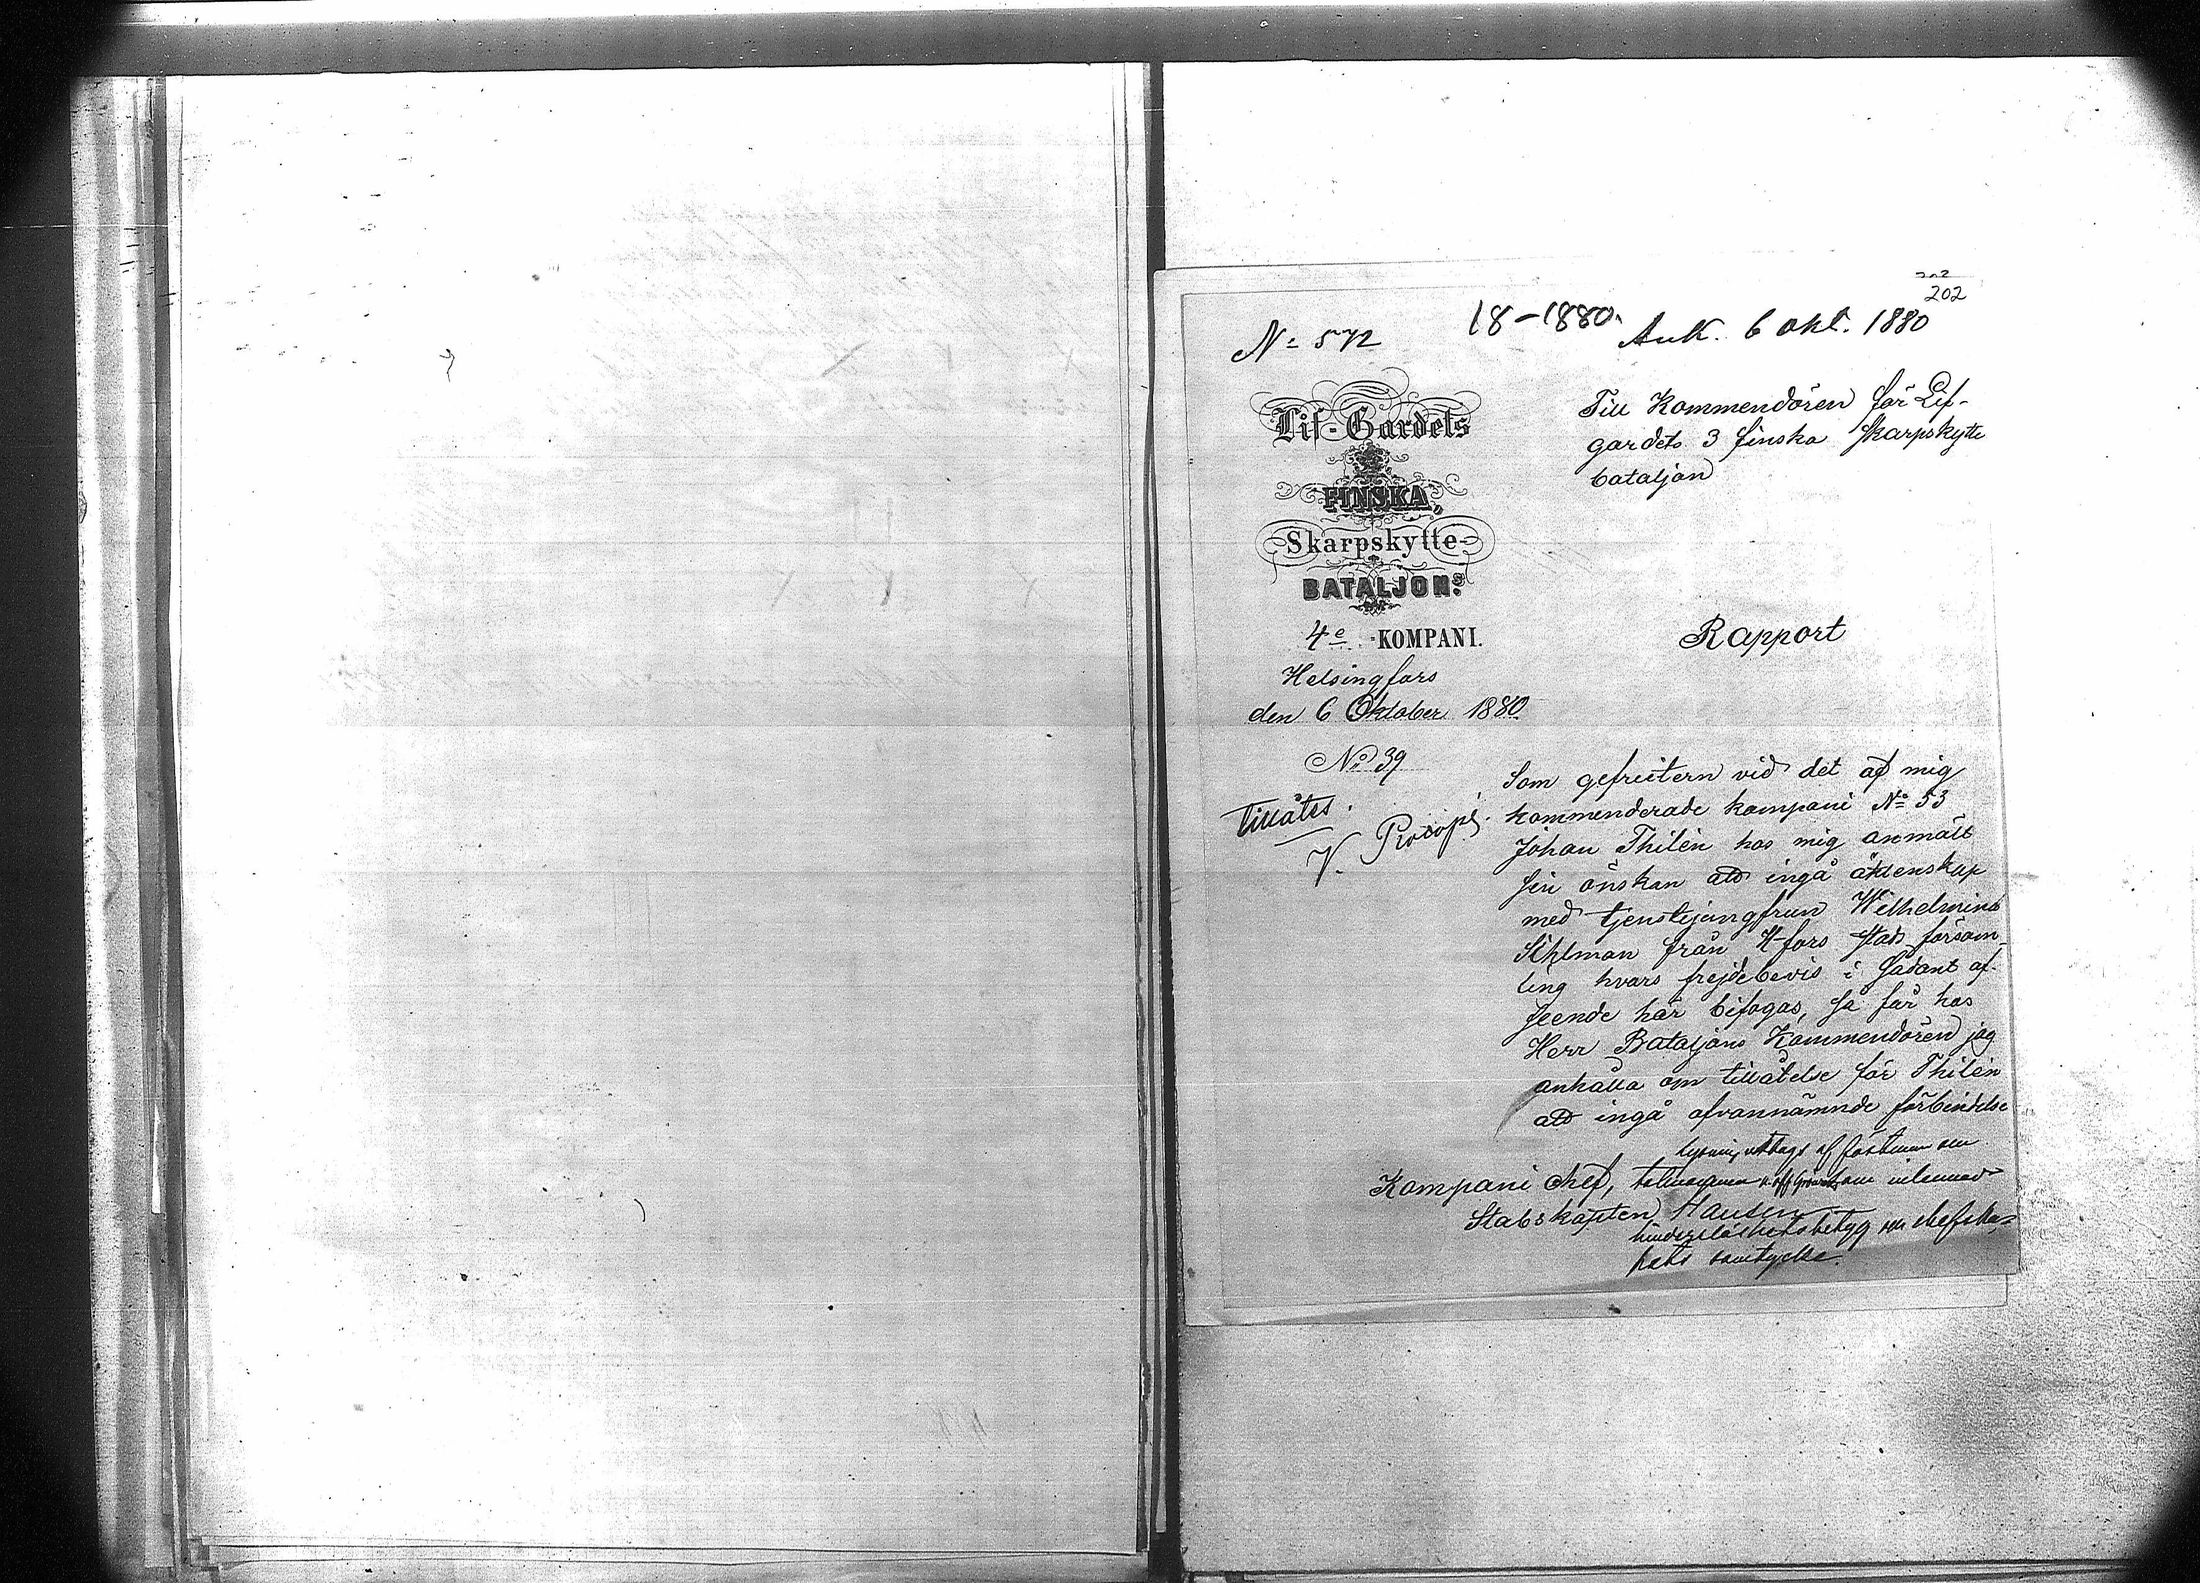 202
202
18-1880.
Ank. 6 okt. 1880
N: 572
Lif-Gardets
FINSKA,
Skarpskytte-
BATALJONS
4e KOMPANI.
Helsingfors
den 6 Oktober 1880.
No 39
Tillåtes.
V. Procopé.
Till Kommendören för Lif-
gardets 3 finska Skarpskytte
bataljon
Rapport
Som gefreitern vid det af mig
kommenderade kompani No 53
Johan Thilén hos mig anmält
sin önskan att ingå äktenskap
med tjenstejungfrun Wilhelmina
Sihlman från H-fors stads försam
ling hvars frejdebevis i sådant af-
seende här bifogas, så får hos
Herr Bataljons Kommendören jag
anhålla om tillåtelse för Thilén
att ingå ofvannämnde förbindelse
Kompani chef,
Stabskapten Hausen
lysning uttags af fästman
hinderslöshetsbetyg
samtycke.